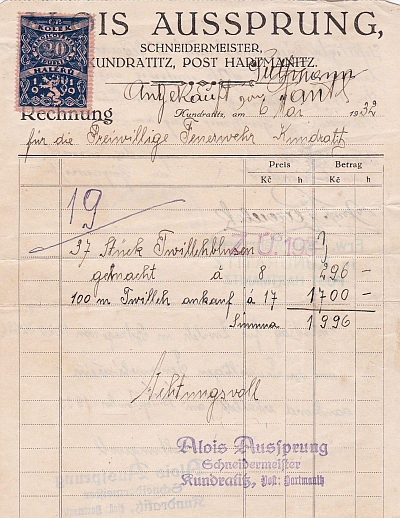 KOLEK
20
HALÉŘŮ
IS AUSSPRUNG,
SCHNEIDERMEISTER,
KUNDRATITZ, POST HARTMANITZ.
Rechnung
Kundratitz, am 6 Mai 1932
für die Freiwillige Feuerwehr Kundratitz
Preis Betrag
Kč h Kč h
19
37 Stück Twillichblusen
gemacht á 8 296 —
100 m Twillich ankauf á 17 1700 —
Summa 1996
Achtungsvoll
Alois Aussprung
Schneidermeister
Kundratitz, Post: Hartmanitz